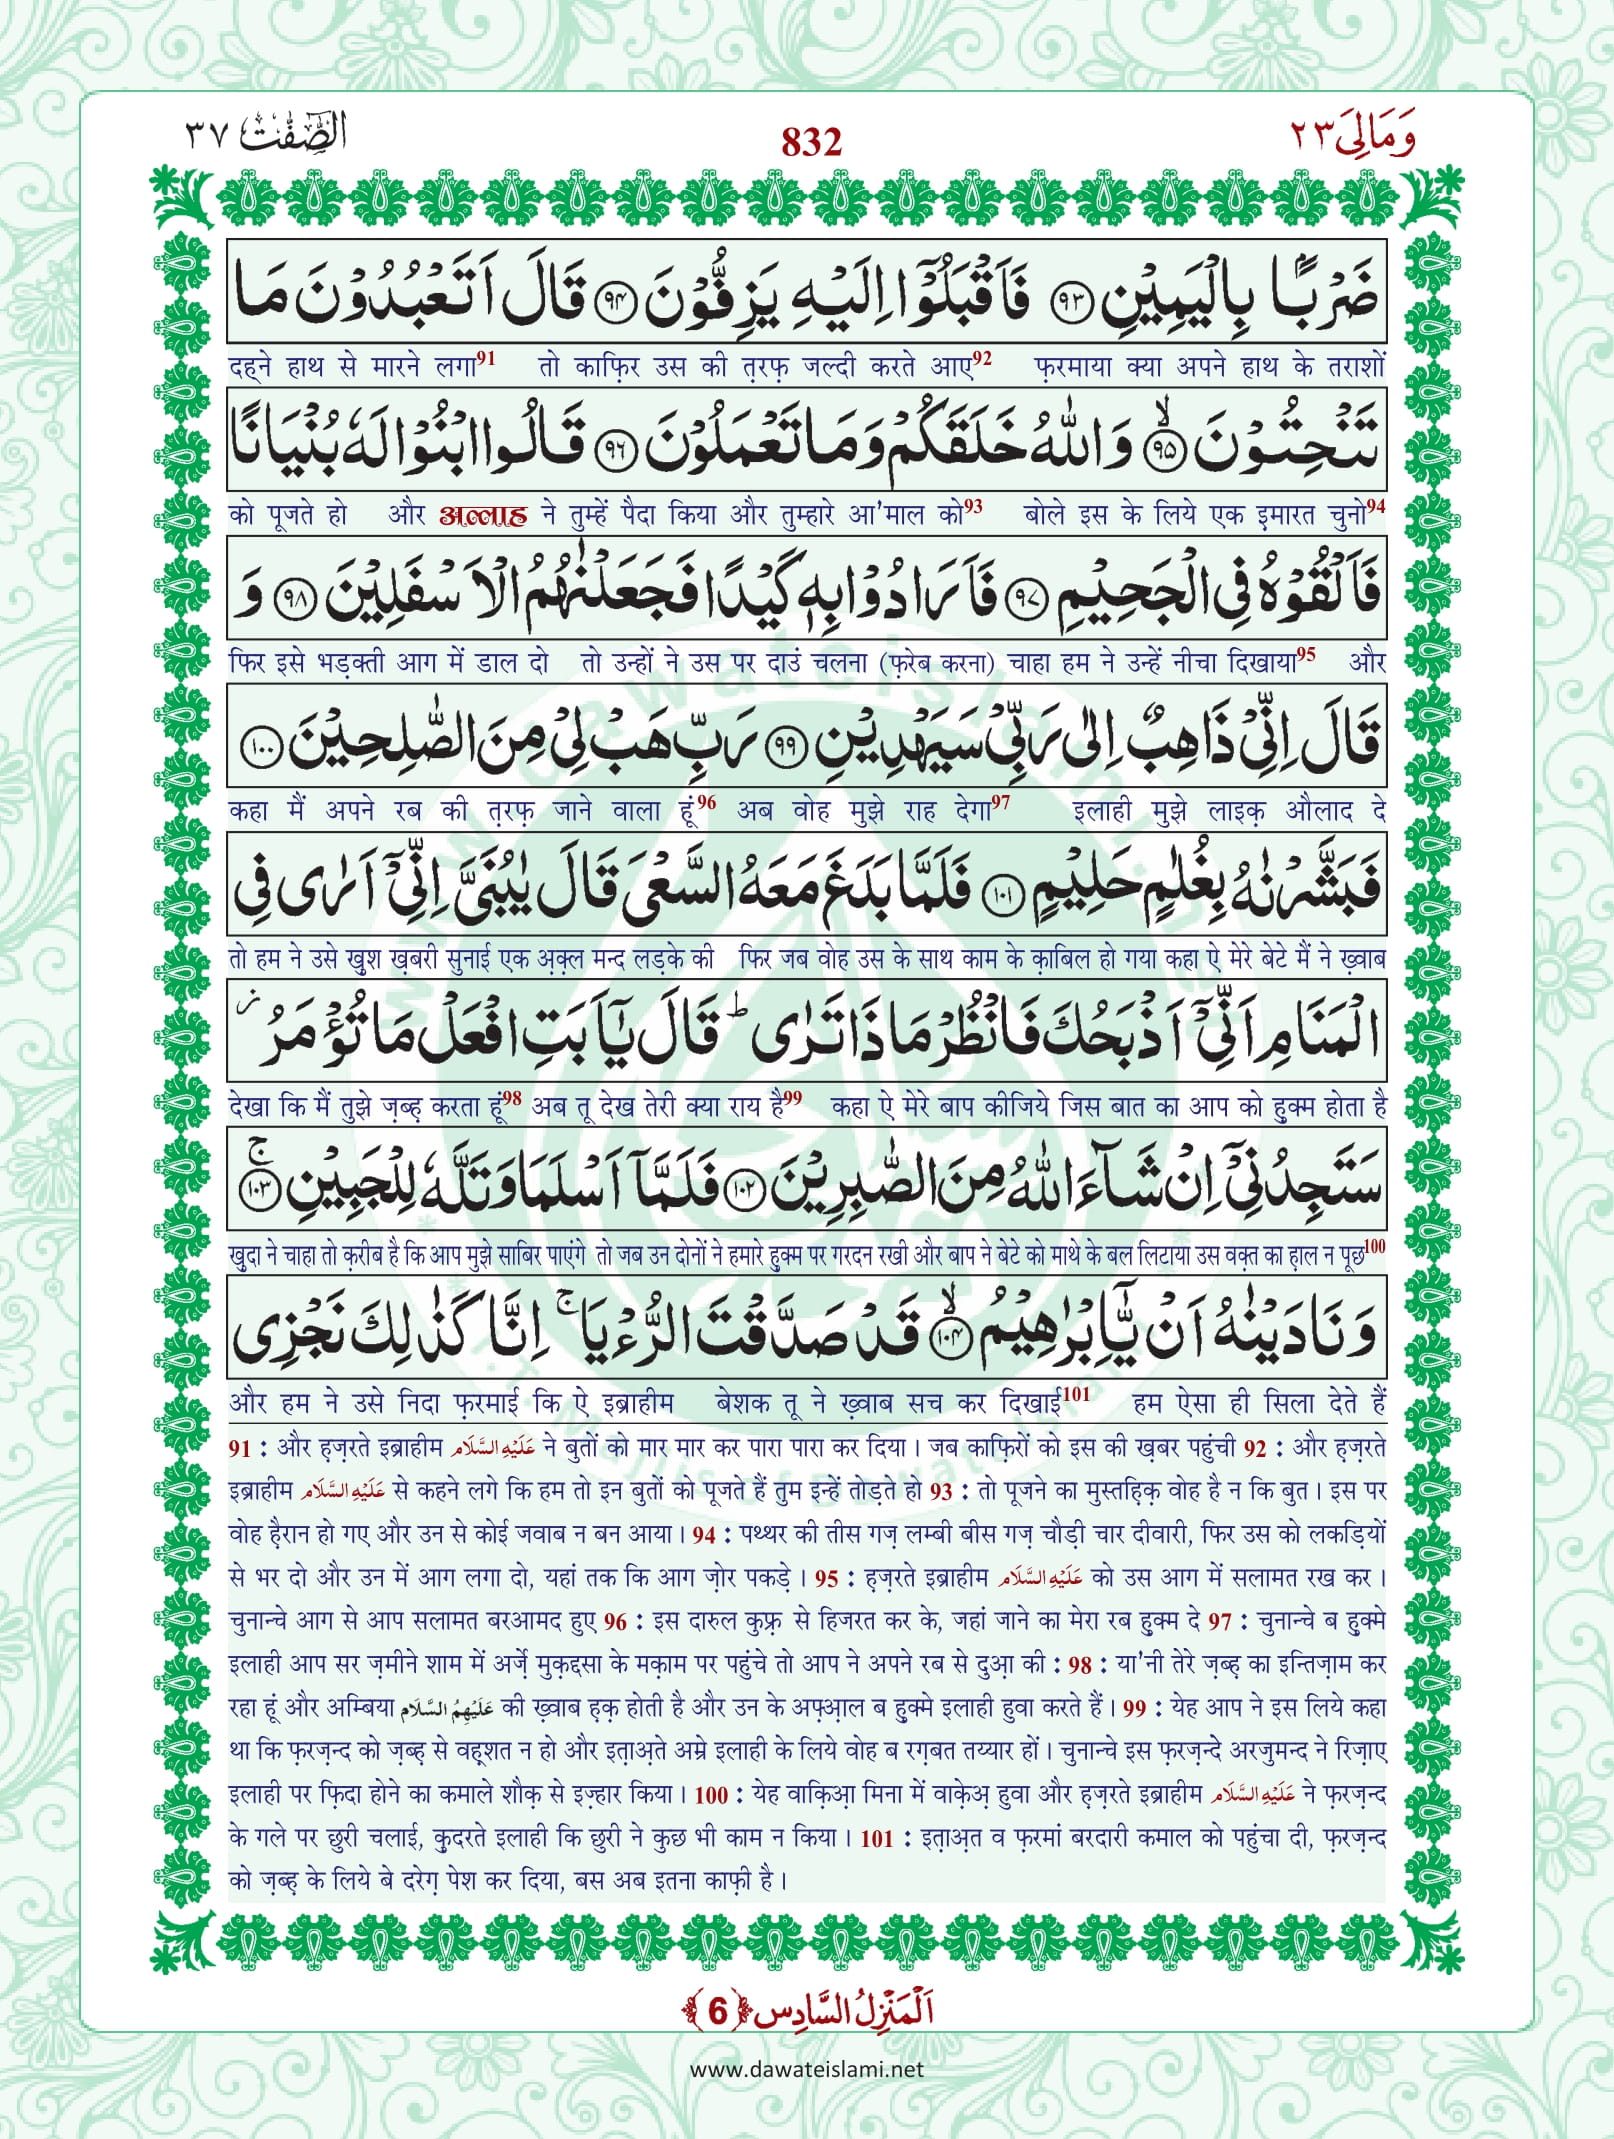 وَمَالِیَ ٢٣
832
الصّٰٓفّٰت ٣٧
ضَرْبًۢا بِالْیَمِیْنِ ﴿۹۳﴾ فَاَقْبَلُوْۤا اِلَیْهِ یَزِفُّوْنَ ﴿۹۴﴾ قَالَ اَتَعْبُدُوْنَ مَا
दहने हाथ से मारने लगा91 तो काफ़िर उस की त़रफ़ जल्दी करते आए92 फ़रमाया क्या अपने हाथ के तराशों
تَنْحِتُوْنَ ﴿ۙ۹۵﴾ وَ اللّٰهُ خَلَقَكُمْ وَ مَا تَعْمَلُوْنَ ﴿۹۶﴾ قَالُوا ابْنُوْا لَهٗ بُنْیَانًا
को पूजते हो और अल्लाह ने तुम्हें पैदा किया और तुम्हारे आ'माल को93 बोले इस के लिये एक इमारत चुनो94
فَاَلْقُوْهُ فِی الْجَحِیْمِ ﴿۹۷﴾ فَاَرَادُوْا بِهٖ كَیْدًا فَجَعَلْنٰهُمُ الْاَسْفَلِیْنَ ﴿۹۸﴾ وَ
फिर इसे भड़क्ती आग में डाल दो तो उन्हों ने उस पर दाउं चलना (फ़रेब करना) चाहा हम ने उन्हें नीचा दिखाया95 और
قَالَ اِنِّیْ ذَاهِبٌ اِلٰى رَبِّیْ سَیَهْدِیْنِ ﴿۹۹﴾ رَبِّ هَبْ لِیْ مِنَ الصّٰلِحِیْنَ ﴿۱۰۰﴾
कहा मैं अपने रब की त़रफ़ जाने वाला हूं96 अब वोह मुझे राह देगा97 इलाही मुझे लाइक़ औलाद दे
فَبَشَّرْنٰهُ بِغُلٰمٍ حَلِیْمٍ ﴿۱۰۱﴾ فَلَمَّا بَلَغَ مَعَهُ السَّعْیَ قَالَ یٰبُنَیَّ اِنِّیْۤ اَرٰى فِی
तो हम ने उसे ख़ुश ख़बरी सुनाई एक अ़क़्ल मन्द लड़के की फिर जब वोह उस के साथ काम के क़ाबिल हो गया कहा ऐ मेरे बेटे मैं ने ख़्वाब
الْمَنَامِ اَنِّیْۤ اَذْبَحُكَ فَانْظُرْ مَا ذَا تَرٰىؕ قَالَ یٰۤاَبَتِ افْعَلْ مَا تُؤْمَرُ٘
देखा कि मैं तुझे ज़ब्ह़ करता हूं98 अब तू देख तेरी क्या राय है99 कहा ऐ मेरे बाप कीजिये जिस बात का आप को ह़ुक्म होता है
سَتَجِدُنِیْۤ اِنْ شَآءَ اللّٰهُ مِنَ الصّٰبِرِیْنَ ﴿۱۰۲﴾ فَلَمَّاۤ اَسْلَمَا وَ تَلَّهٗ لِلْجَبِیْنِ ﴿ۚ۱۰۳﴾
ख़ुदा ने चाहा तो क़रीब है कि आप मुझे साबिर पाएंगे तो जब उन दोनों ने हमारे ह़ुक्म पर गरदन रखी और बाप ने बेटे को माथे के बल लिटाया उस वक़्त का ह़ाल न पूछ100
وَ نَادَیْنٰهُ اَنْ یّٰۤاِبْرٰهِیْمُ ﴿ۙ۱۰۴﴾ قَدْ صَدَّقْتَ الرُّءْیَاۚ اِنَّا كَذٰلِكَ نَجْزِی
और हम ने उसे निदा फ़रमाई कि ऐ इब्राहीम बेशक तू ने ख़्वाब सच कर दिखाई101 हम ऐसा ही सिला देते हैं
91 : और ह़ज़रते इब्राहीम عَلَیْهِ السَّلَام ने बुतों को मार मार कर पारा पारा कर दिया । जब काफ़िरों को इस की ख़बर पहुंची 92 : और ह़ज़रते
इब्राहीम عَلَیْهِ السَّلَام से कहने लगे कि हम तो इन बुतों को पूजते हैं तुम इन्हें तोड़ते हो 93 : तो पूजने का मुस्तह़िक़ वोह है न कि बुत । इस पर
वोह ह़ैरान हो गए और उन से कोई जवाब न बन आया । 94 : पथ्थर की तीस गज़ लम्बी बीस गज़ चौड़ी चार दीवारी, फिर उस को लकड़ियों
से भर दो और उन में आग लगा दो, यहां तक कि आग ज़ोर पकड़े । 95 : ह़ज़रते इब्राहीम عَلَیْهِ السَّلَام को उस आग में सलामत रख कर ।
चुनान्चे आग से आप सलामत बरआमद हुए 96 : इस दारुल कुफ़्र से हिजरत कर के, जहां जाने का मेरा रब ह़ुक्म दे 97 : चुनान्चे ब ह़ुक्मे
इलाही आप सर ज़मीने शाम में अर्ज़े मुक़द्दसा के मक़ाम पर पहुंचे तो आप ने अपने रब से दुआ़ की : 98 : या'नी तेरे ज़ब्ह़ का इन्तिज़ाम कर
रहा हूं और अम्बिया عَلَیْهِمُ السَّلَام की ख़्वाब ह़क़ होती है और उन के अफ़्आ़ल ब ह़ुक्मे इलाही हुवा करते हैं । 99 : येह आप ने इस लिये कहा
था कि फ़रज़न्द को ज़ब्ह़ से वह़्शत न हो और इत़ाअ़ते अम्रे इलाही के लिये वोह ब रग़बत तय्यार हों । चुनान्चे इस फ़रज़न्दे अरजुमन्द ने रिज़ाए
इलाही पर फ़िदा होने का कमाले शौक़ से इज़्हार किया । 100 : येह वाक़िआ़ मिना में वाक़ेअ़ हुवा और ह़ज़रते इब्राहीम عَلَیْهِ السَّلَام ने फ़रज़न्द
के गले पर छुरी चलाई, क़ुदरते इलाही कि छुरी ने कुछ भी काम न किया । 101 : इत़ाअ़त व फ़रमां बरदारी कमाल को पहुंचा दी, फ़रज़न्द
को ज़ब्ह़ के लिये बे दरेग़ पेश कर दिया, बस अब इतना काफ़ी है ।
اَلْمَنْزِلُ السَّادِس ﴿6﴾
www.dawateislami.net